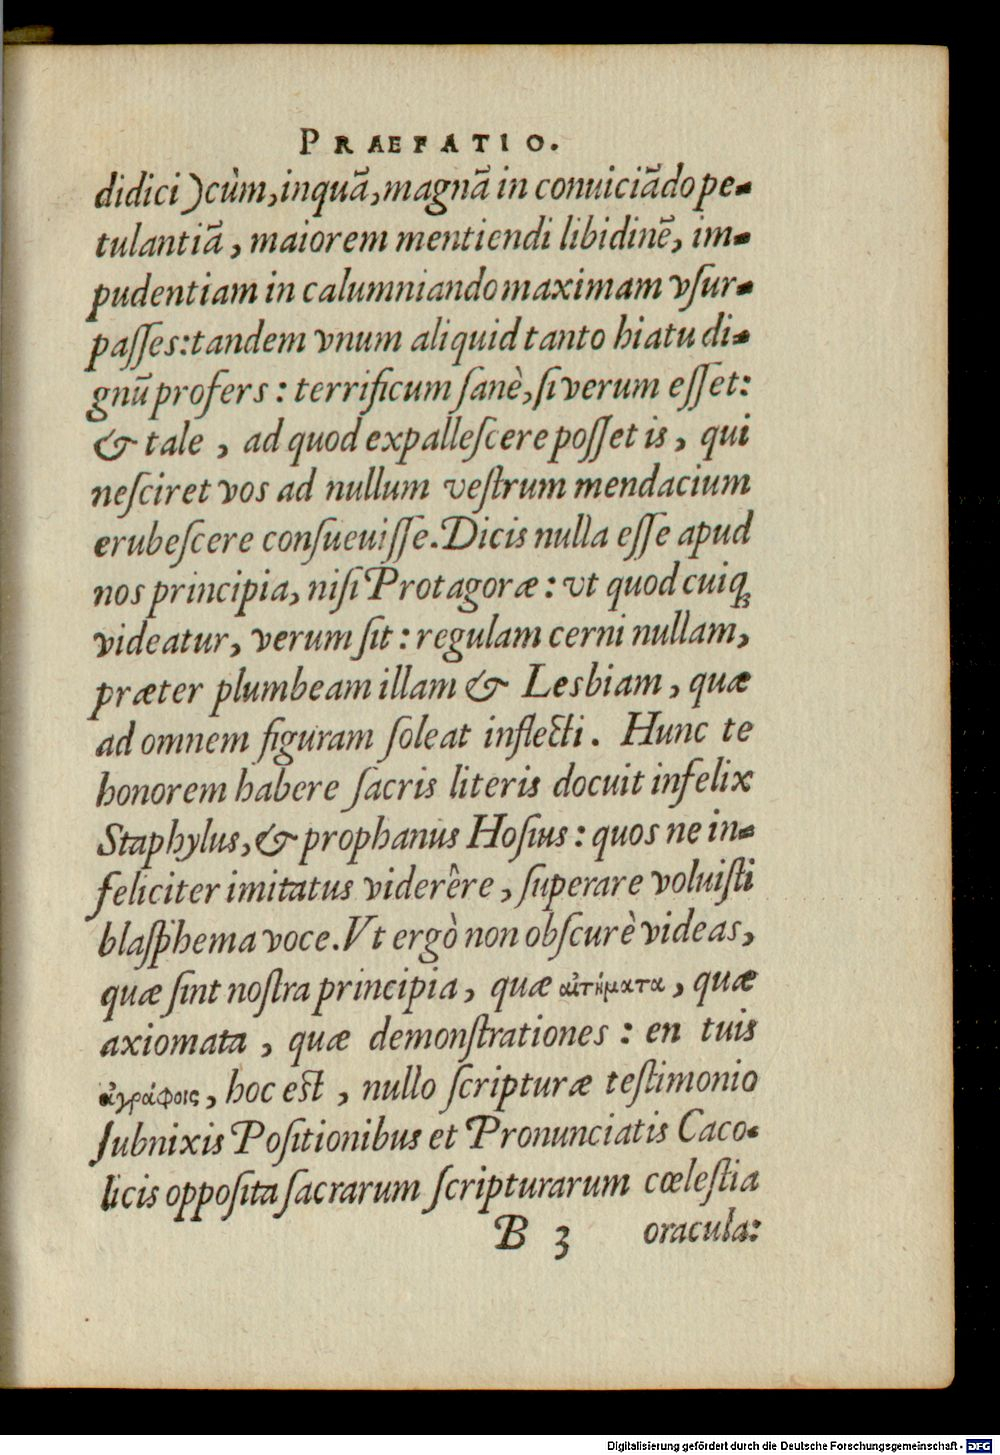 PRAEFATIO.
didici) cùm, inquã, magnã in conuiciãdo pe-
tulantiã, maiorem mentiendi libidinẽ, im-
pudentiam in calumniando maximam vſur-
paſſes: tandem vnum aliquid tanto hiatu di-
gnũ profers: terrificum ſanè, ſi verum eſſet:
& tale, ad quod expalleſcere poſſet is, qui
neſciret vos ad nullum veſtrum mendacium
erubeſcere conſueuiſſe. Dicis nulla eſſe apud
nos principia, niſi Protagoræ: vt quod cuiqꝫ
videatur, verum ſit: regulam cerni nullam,
præter plumbeam illam & Lesbiam, quæ
ad omnem figuram ſoleat inflecti. Hunc te
honorem habere ſacris literis docuit infelix
Staphylus, & prophanus Hoſius: quos ne in-
feliciter imitatus viderêre, ſuperare voluiſti
blaſphema voce. Vt ergò non obſcurè videas,
quæ ſint noſtra principia, quæ αἰτήματα, quæ
axiomata, quæ demonſtrationes: en tuis
ἀγράφοις, hoc eſt, nullo ſcripturæ teſtimonio
ſubnixis Poſitionibus et Pronunciatis Caco-
licis oppoſita ſacrarum ſcripturarum cœleſtia
B 3 oracula:
Digitalisierung gefördert durch die Deutsche Forschungsgemeinschaft - DFG